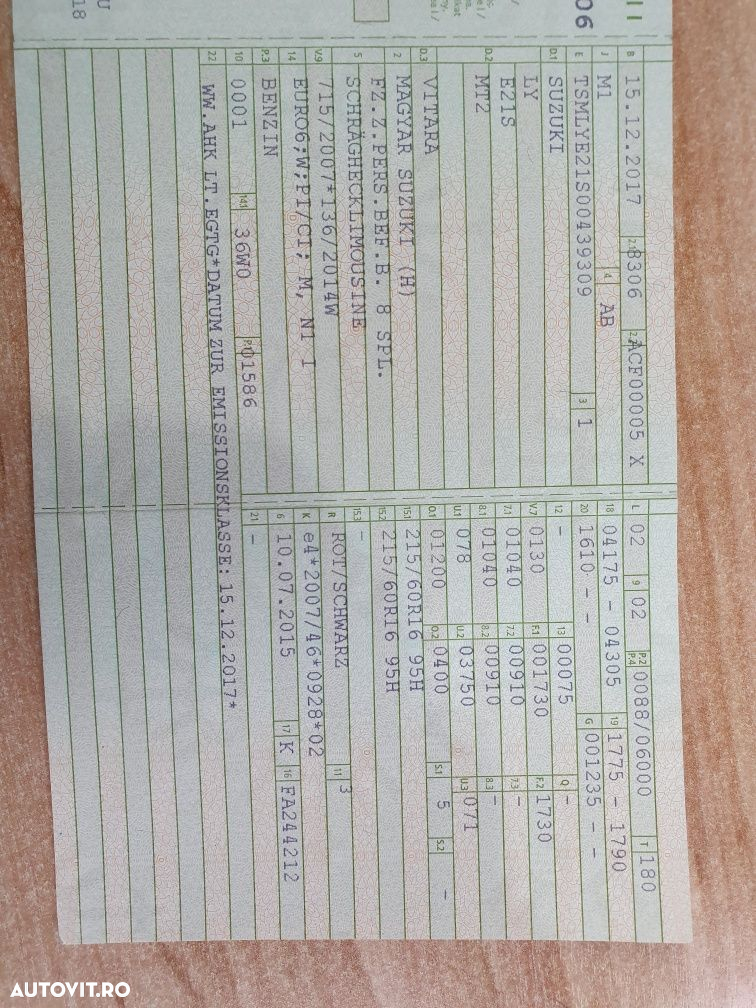 06
18
U
B 15.12.2017 2.1 8306 2.2 ACF00005 X
J M1 4 AB
E TSMLYE21S00439309 3 1
D.1 SUZUKI
D.2 LY
E21S
MT2
D.3 VITARA
2 MAGYAR SUZUKI (H)
5 FZ.Z.PERS.BEF.B. 8 SPL.
SCHRÄGHECKLIMOUSINE
V.9 715/2007*136/2014W
14 EURO6;W;PI/CI; M, N1 I
P.3 BENZIN
10 0001 14.1 36W0 P.1 01586
22 WW.AHK LT.EGTG*DATUM ZUR EMISSIONSKLASSE:15.12.2017*
L 02 9 02 P.2 P.4 0088/06000 T 180
18 04175 - 04305 19 1775 - 1790
20 1610 - - G 001235 - -
12 - 13 00075 Q -
V.7 0130 F.1 001730 F.2 1730
7.1 01040 7.2 00910 7.3 -
8.1 01040 8.2 00910 8.3 -
U.1 078 U.2 03750 U.3 071
O.1 01200 O.2 0400 S.1 5 S.2 -
15.1 215/60R16 95H
15.2 215/60R16 95H
15.3 -
R ROT/SCHWARZ 11 3
K e4*2007/46*0928*02
6 10.07.2015 17 K 16 FA244212
21 -
AUTOVIT.RO